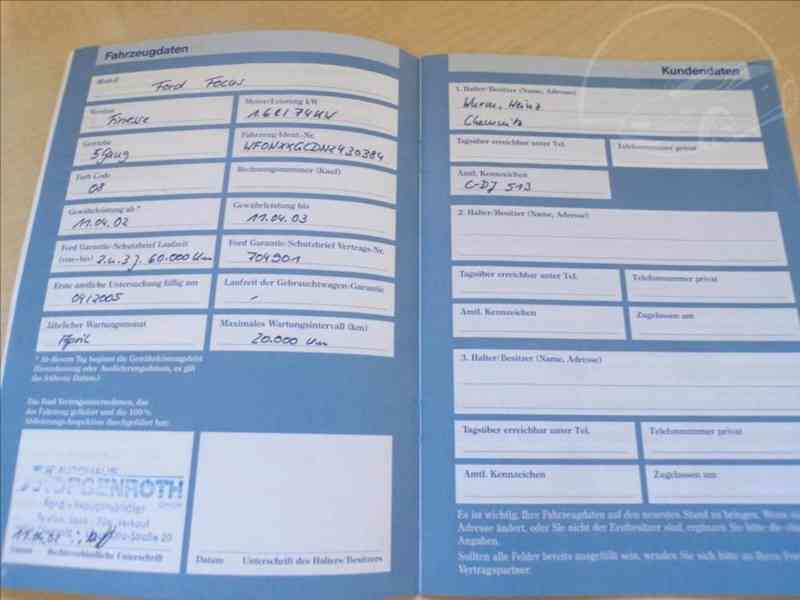 Fahrzeugdaten
Modell
Ford Focus
Version
Finesse
Motor/Leistung kW
1.6l / 74 KW
Getriebe
5Gang
Fahrzeug-Ident.-Nr.
Farb Code
08
Rechnungsnummer (Kauf)
Gewährleistung ab *
11.04.02
Gewährleistung bis
11.04.03
Ford Garantie-Schutzbrief Laufzeit
(von-bis) 2.u.3 J. 60.000 Km
Ford Garantie-Schutzbrief Vertrags-Nr.
704901
Erste amtliche Untersuchung fällig am
04/2005
Laufzeit der Gebrauchtwagen-Garantie
-
Jährlicher Wartungsmonat
April
Maximales Wartungsintervall (km)
20.000 Km
* Ab diesem Tag beginnt die Gewährleistungsfrist
(Erstzulassung oder Auslieferungsdatum, es gilt
das frühere Datum.)
Das Ford Vertragsunternehmen, das
das Fahrzeug geliefert und die 100 %
Ablieferungs-Inspektion durchgeführt hat:
AUTOHAUS
MORGENROTH
GmbH
Ford - Haupthändler
Verkauf
-Straße 20
Datum Rechtsverbindliche Unterschrift
Datum Unterschrift des Halters/Besitzers
Kundendaten
1. Halter/Besitzer (Name, Adresse)
Wurm, Heinz
Chemnitz
Tagsüber erreichbar unter Tel.
Telefonnummer privat
Amtl. Kennzeichen
C-DJ 513
2. Halter/Besitzer (Name, Adresse)
Tagsüber erreichbar unter Tel.
Telefonnummer privat
Amtl. Kennzeichen
Zugelassen am
3. Halter/Besitzer (Name, Adresse)
Tagsüber erreichbar unter Tel.
Telefonnummer privat
Amtl. Kennzeichen
Zugelassen am
Es ist wichtig, Ihre Fahrzeugdaten auf den neuesten Stand zu bringen. Wenn
Adresse ändert, oder Sie nicht der Erstbesitzer sind, ergänzen Sie bitte die
Angaben.
Sollten alle Felder bereits ausgefüllt sein, wenden Sie sich bitte an Ihren
Vertragspartner.